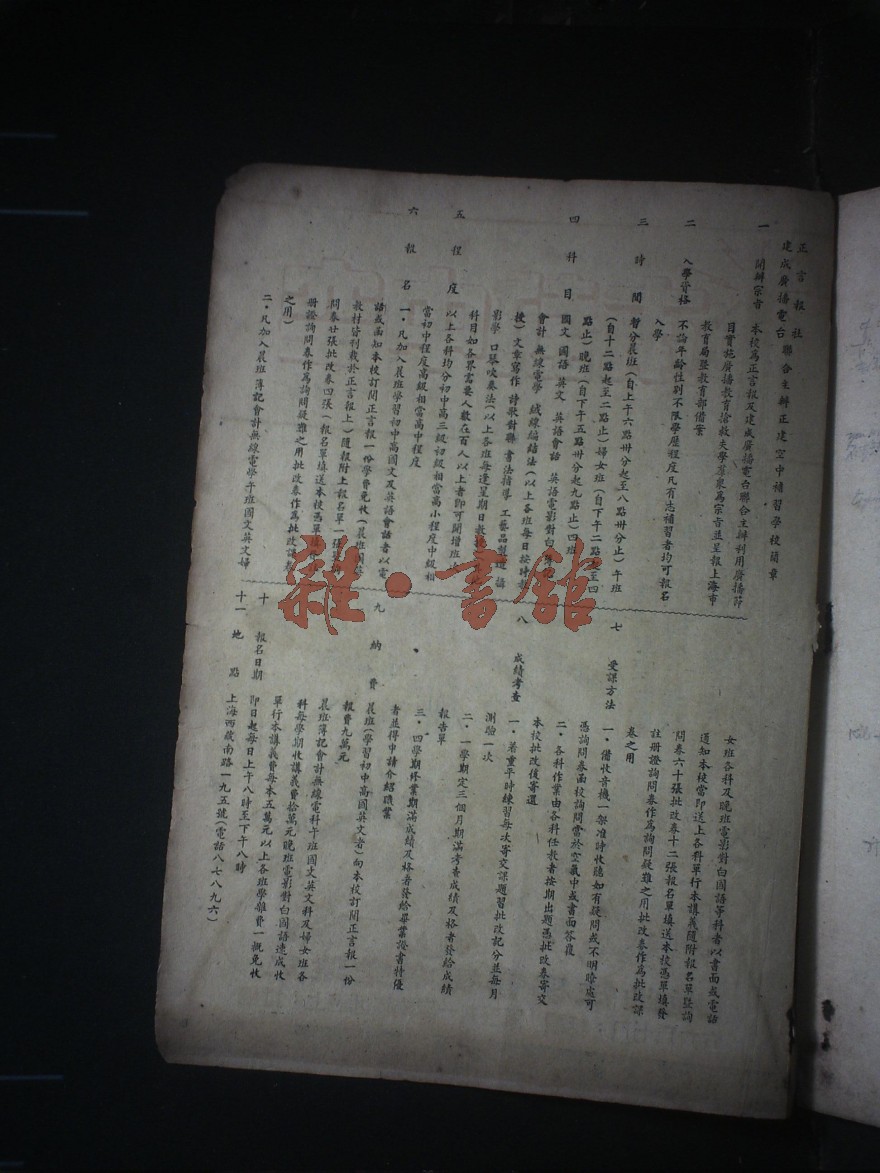 正言報社
建成廣播電台 聯合主辦正建空中補習學校簡章
一 開辦宗旨 本校為正言報及建成廣播電台聯合主辦利用廣播節
目實施廣播教育搶救失學羣衆為宗旨並呈報上海市
教育局曁教育部備案
二 入學資格 不論年齡性別不限學歷程度凡有志補習者均可報名
入學
三 時間 暫分晨班（自上午六點卅分起至八點卅分止）午班
（自十二點起至二點止）婦女班（自下午二點起至四
點止）晚班（自下午五點卅分起九點止）四班
四 科目 國文 國語 英文 英語會話 英語電影對白
會計 無線電學 絨線編結法（以上各班每日按時
授）文章寫作 詩歌對聯 書法指導 工藝品製造 話
影學 口琴吹奏法（以上各班每逢星期日教授
科目如各界需要人數在百人以上者即可開增班次
五 程度 以上各科均分初中高三級初級相當高小程度中級相
當初中程度高級相當高中程度
六 報名 一．凡加入晨班學習初中高國文及英語會話者以電
話或函知本校訂閱正言報一份學費免收（晨班國英
教材皆刊載於正言報上）隨報附上報名單一張
問券廿張批改券四張（報名單填送本校憑單
册證詢問券作為詢問疑難之用批改券作為批改課卷
之用）
二．凡加入晨班簿記會計無線電學午班國文英文婦
女班各科及晚班電影對白國語等科者以書面或電話
通知本校當即送上各科單行本講義隨附報名單曁詢
問券六十張批改券十二張報名單填送本校憑單填發
註册證詢問券作為詢問疑難之用批改券作為批改課
卷之用
七 受課方法 一．備收音機一架准時收聽如有疑問或不明瞭處可
憑詢問券函校詢問當於空氣中或書面答復
二．各科作業由各科任教者按期出題憑批改券寄交
本校批改後寄還
八 成績考查 一．着重平時練習每次寄交課題習批改記分並每月
測驗一次
二．一學期定三個月期滿考查成績及格者發給成績
報告單
三．四學期修業期滿成績及格者發給畢業證書特優
者並得申請介紹職業
九 納費 晨班（學習初中高國英文者）向本校訂閱正言報一份
報費九萬元
晨班簿記會計無線電科午班國文英文科及婦女班各
科每學期收講義費拾萬元晚班電影對白國語速成收
單行本講義費每本五萬元以上各班學雜費一概免收
十 報名日期 即日起每日上午八時至下午八時
十一 地點 上海西藏南路一九五號（電話八七八九六）
雜·書館